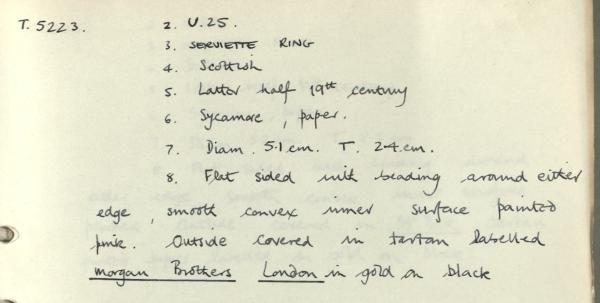 T. 5223. 2. U.25.
3. SERVIETTE RING
4. Scottish
5. Latter half 19th century
6. Sycamore, paper.
7. Diam. 5.1.cm. T. 2.4.cm.
8. Flat sided with beading around either
edge, smooth convex inner surface painted
pink. Outside covered in tartan labelled
Morgan Brothers London in gold on black